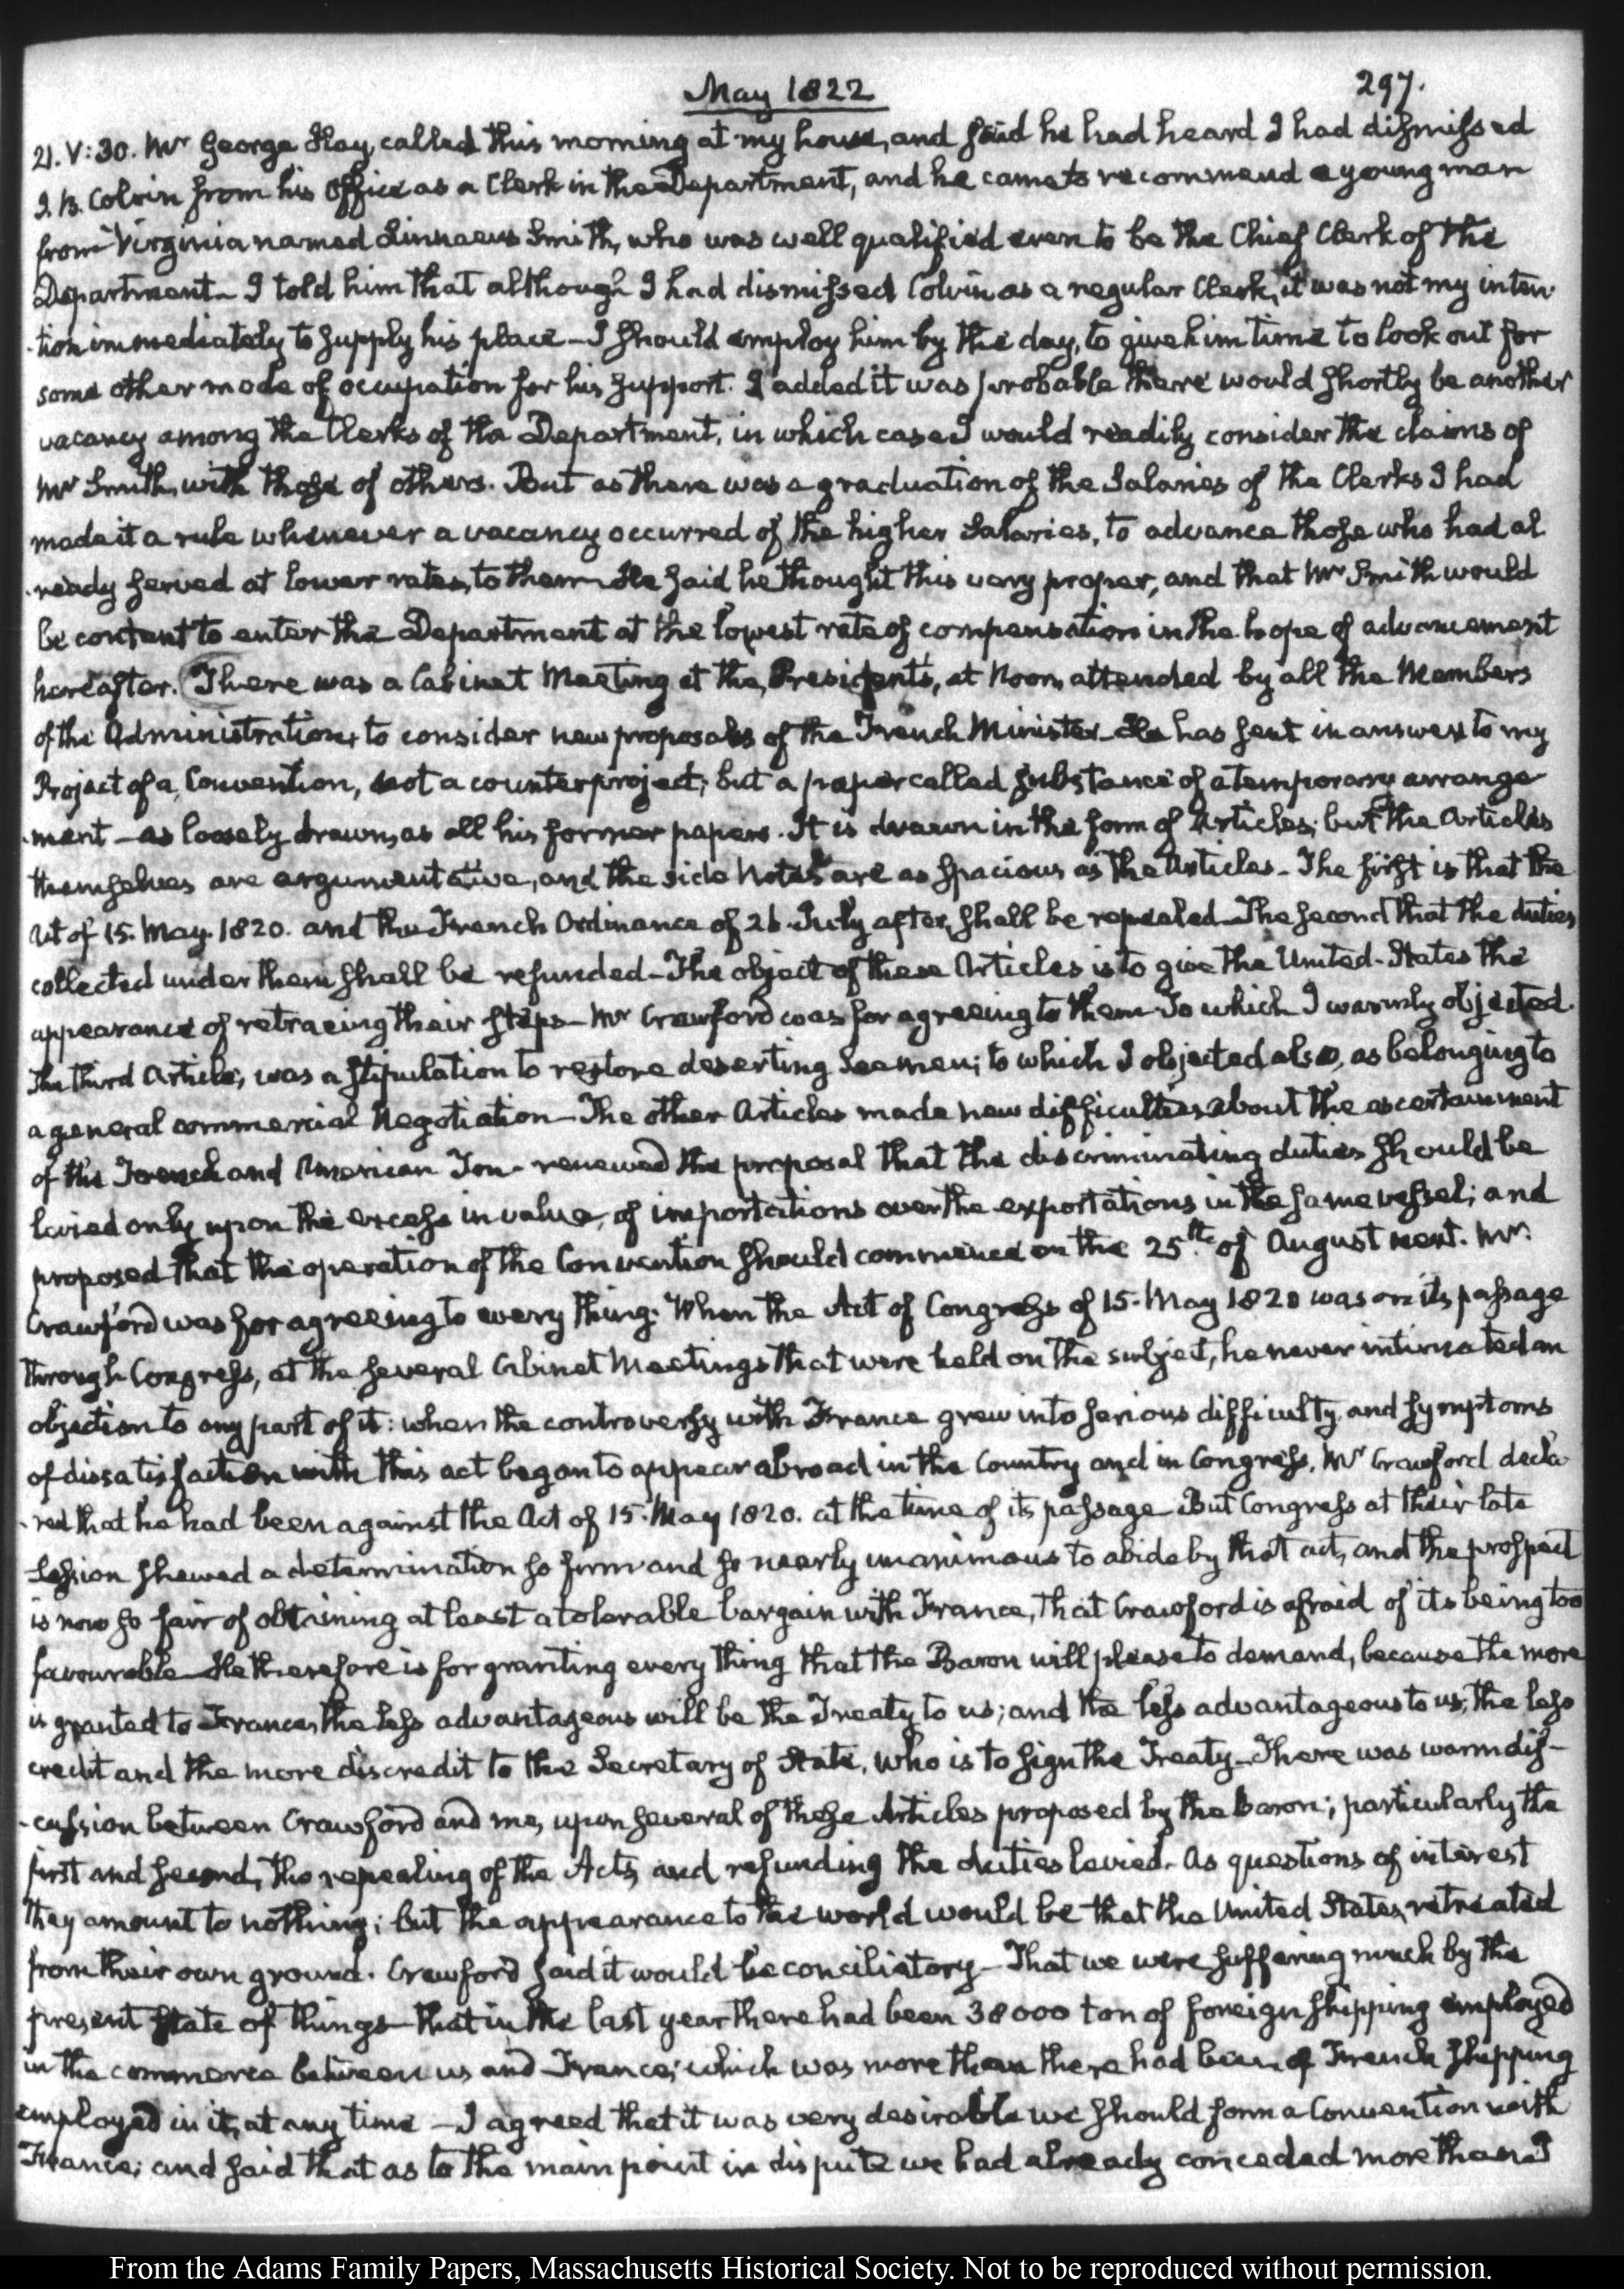 May 1822
297.
21. V:30. Mr George Hay, called this morning at my house, and said he had heard I had dismissed
J. B. Colvin from his Office as a Clerk in the Department, and he came to recommend a young man
from Virginia named Linnaeus Smith, who was well qualified even to be the Chief Clerk of the
Department— I told him that although I had dismissed Colvin as a regular Clerk, it was not my inten
-tion immediately to supply his place— I should employ him by the day, to give him time to look out for
some other mode of occupation for his support. I added it was probable there would shortly be another
vacancy among the Clerks of the Department, in which case I would readily consider the claims of
Mr Smith, with those of others. But as there was a graduation of the Salaries of the Clerks I had
made it a rule whenever a vacancy occurred of the higher Salaries, to advance those who had al
-ready served at lower rates, to them— He said he thought this very proper, and that Mr Smith would
be content to enter the Department at the lowest rate of compensation in the hope of advancement
hereafter. There was a Cabinet Meeting at the President's, at Noon, attended by all the Members
of the Administration, to consider new proposals of the French Minister— He has sent in answer to my
Project of a Convention, not a counter project; but a paper called substance of a temporary arrange
-ment— as loosely drawn, as all his former papers. It is drawn in the form of Articles; but the Articles
themselves are argumentative, and the side Notes are as spacious as the Articles— The first is that the
Act of 15. May. 1820. and the French Ordinance of 26. July after, shall be repealed— The second that the duties
collected under them shall be refunded— The object of these Articles is to give the United-States the
appearance of retracing their steps— Mr Crawford was for agreeing to them— To which I warmly objected.
The third Article, was a stipulation to restore deserting Seamen; to which I objected also, as belonging to
a general commercial Negotiation— The other Articles made new difficulties about the ascertainment
of the French and American Ton— renewed the proposal that the discriminating duties should be
levied only upon the excess in value, of importations over the exportations in the same vessel; and
proposed that the operation of the Convention should commence on the 25th. of August next. Mr.
Crawford was for agreeing to every thing. When the Act of Congress of 15. May 1820 was on its passage
through Congress, at the several Cabinet Meetings that were held on the subject, he never intimated an
objection to any part of it: when the controversy with France grew into serious difficulty, and symptoms
of dissatisfaction with this act began to appear abroad in the Country and in Congress, Mr Crawford decla
-red that he had been against the Act of 15. May 1820. at the time of its passage— But Congress at their late
Session shewed a determination so firm and so nearly unanimous to abide by that act, and the prospect
is now so fair of obtaining at least a tolerable bargain with France, that Crawford is afraid of its being too
favourable— He therefore is for granting every thing that the Baron will please to demand, because the more
is granted to France, the less advantageous will be the Treaty to us; and the less advantageous to us, the less
credit and the more discredit to the Secretary of State, who is to sign the Treaty— There was warm dis-
-cussion between Crawford and me, upon several of these Articles proposed by the Baron; particularly the
first and second, the repealing of the Acts, and refunding the duties levied. As questions of interest
they amount to nothing; but the appearance to the world would be that the United States, retreated
from their own ground. Crawford said it would be conciliatory— That we were suffering much by the
present state of things— that in the last year there had been 38000 ton of foreign shipping employed
in the commerce between us and France; which was more than there had been of French shipping
employed in it, at any time— I agreed that it was very desirable we should form a Convention with
France; and said that as to the main point in dispute we had already conceded more than I
From the Adams Family Papers, Massachusetts Historical Society. Not to be reproduced without permission.